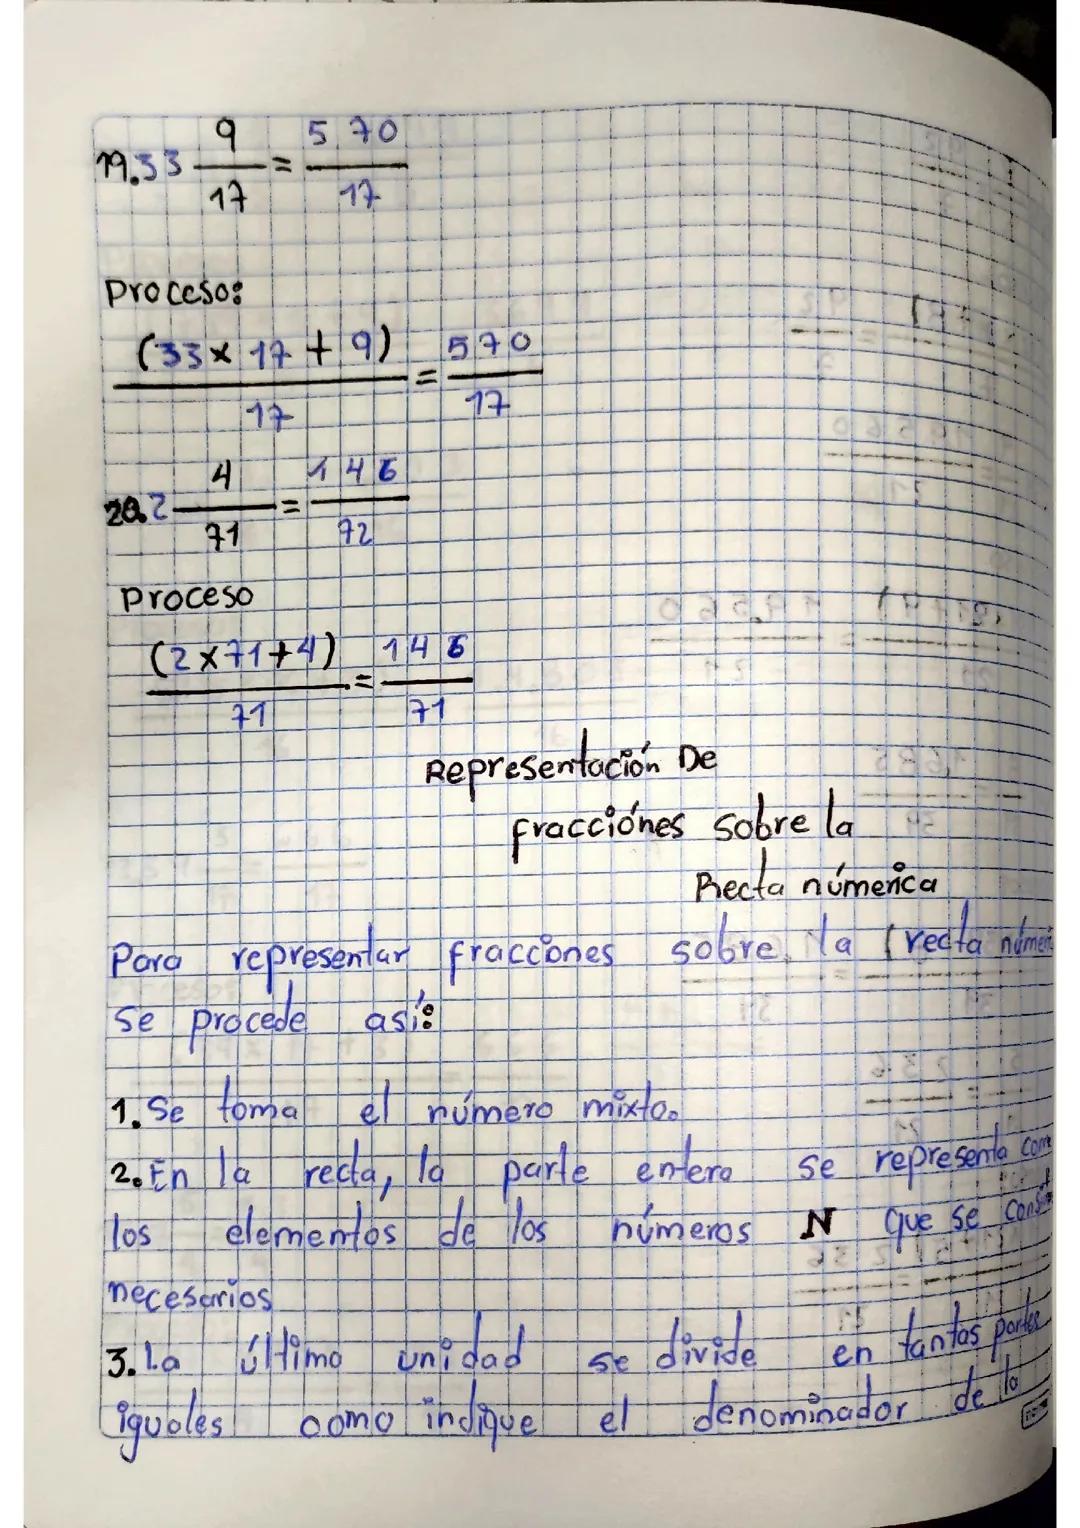 19. 33 9/17 = 570/17
Proceso:
(33 x 17 + 9)/17 = 570/17
20. 2 4/71 = 146/72
Proceso
(2 x 71 + 4)/71 = 146/71
Representación De
fracciónes sobre la
Recta númerica
Para representar fracciones sobre la recta númeri
se procede así:
1. Se toma el número mixto.
2. En la recta, la parte entera se representa con
los elementos de los números N que se
necesarios
3. La último unidad se divide en tantas partes
iguales como indique el denominador de la